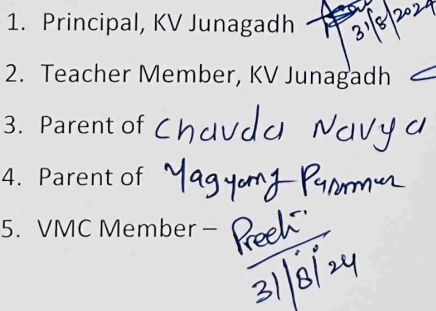 1. Principal, KV Junagadh
31/8/2024
2. Teacher Member, KV Junagadh
3. Parent of Chavda Navya
4. Parent of
5. VMC Member – Preeti
31/8/24